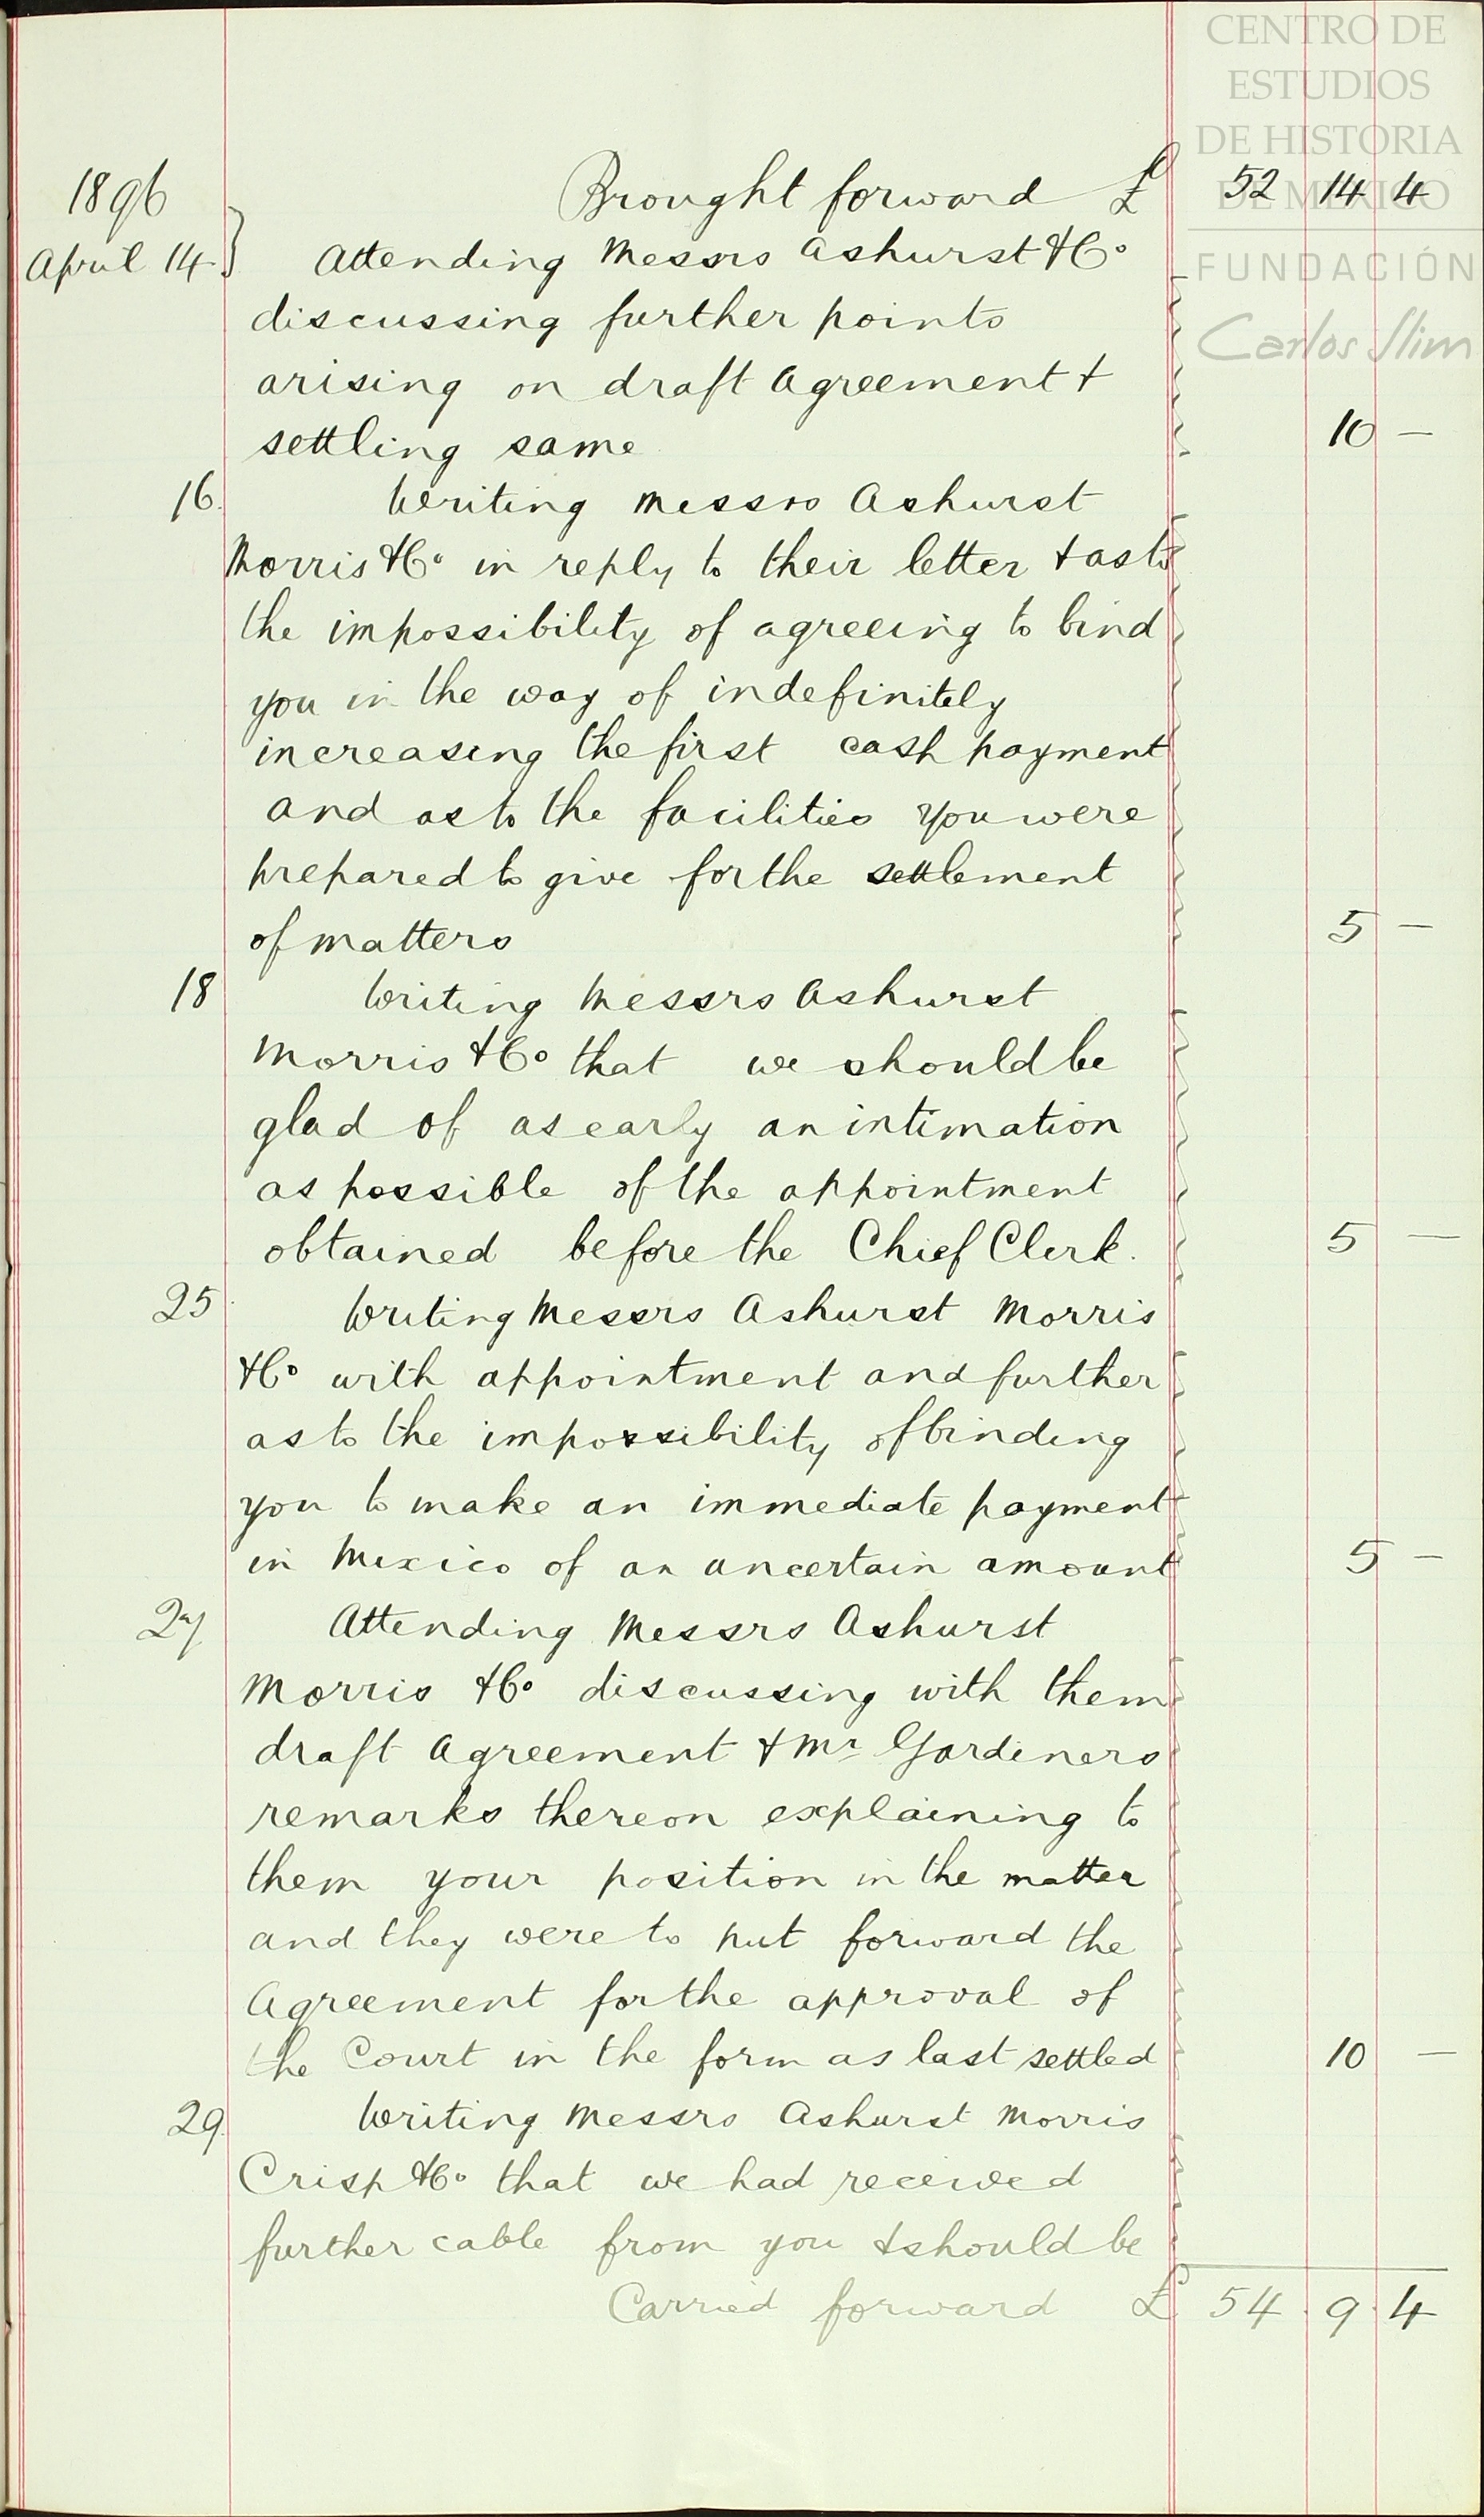 CENTRO DE
ESTUDIOS
DE HISTORIA
DE MEXICO
FUNDACIÓN
Carlos Slim
1896 Brought forward £ 52 14 4
April 14 } Attending Messrs Ashurst & Co
discussing further points
arising on draft Agreement &
settling same 10 —
16. Writing Messrs Ashurst
Morris & Co in reply to their letter & as to
the impossibility of agreeing to bind
you in the way of indefinitely
increasing the first cash payment
and as to the facilities you were
prepared to give for the settlement
of matters 5 —
18 Writing Messrs Ashurst
Morris & Co that we should be
glad of as early an intimation
as possible of the appointment
obtained before the Chief Clerk. 5 —
25 Writing Messrs Ashurst Morris
& Co with appointment and further
as to the impossibility of binding
you to make an immediate payment
in Mexico of an uncertain amount 5 —
27 Attending Messrs Ashurst
Morris & Co discussing with them
draft Agreement & Mr Gardiners
remarks thereon explaining to
them your position in the matter
and they were to put forward the
Agreement for the approval of
the Court in the form as last settled 10 —
29. Writing Messrs Ashurst Morris
Crisp & Co that we had received
further cable from you & should be
Carried forward £ 54 9 4